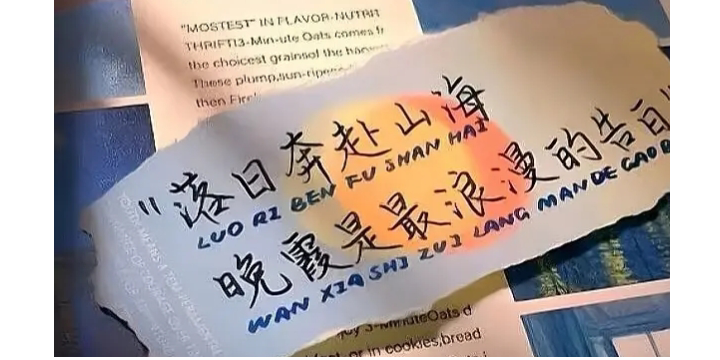 "MOSTEST" IN FLAVOR-NUTRIT
THRIFT!3-Min-ute Oats comes fr
the choicest grainsof the harv
These plump,sun-ripene
then Fire
"落日奔赴山海
LUO RI BEN FU SHAN HAI
晚霞是最浪漫的告白
WAN XIA SHI ZUI LANG MAN DE GAO B
joy 3-MinuteOats d
or in cookies,bread